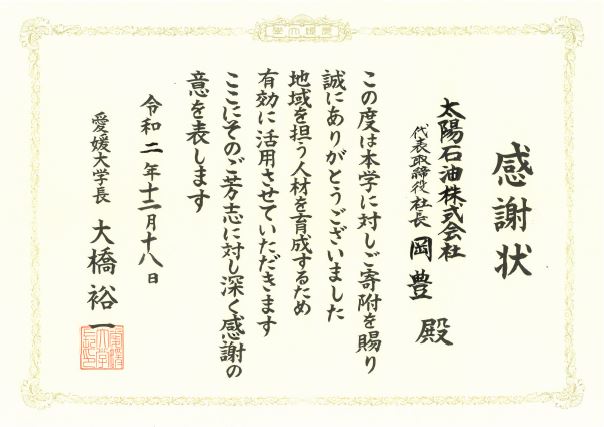 愛媛大学
感謝状
太陽石油株式会社
代表取締役社長 岡豊 殿
この度は本学に対しご寄附を賜り
誠にありがとうございました
地域を担う人材を育成するため
有効に活用させていただきます
ここにそのご芳志に対し深く感謝の
意を表します
令和二年十二月十八日
愛媛大学長 大橋裕一